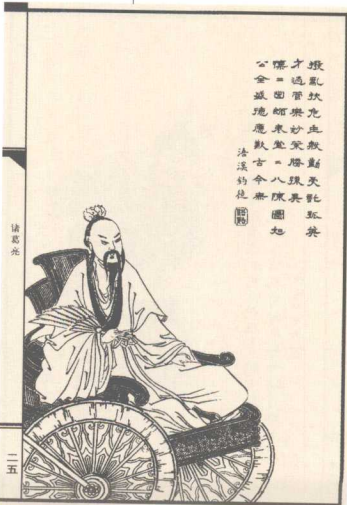 撥亂扶危主殷勤受託孤英
才過管樂妙策勝孫吳
凜〻出師表堂〻八陣圖如
公全盛德應歎古今無
诸葛亮
二五